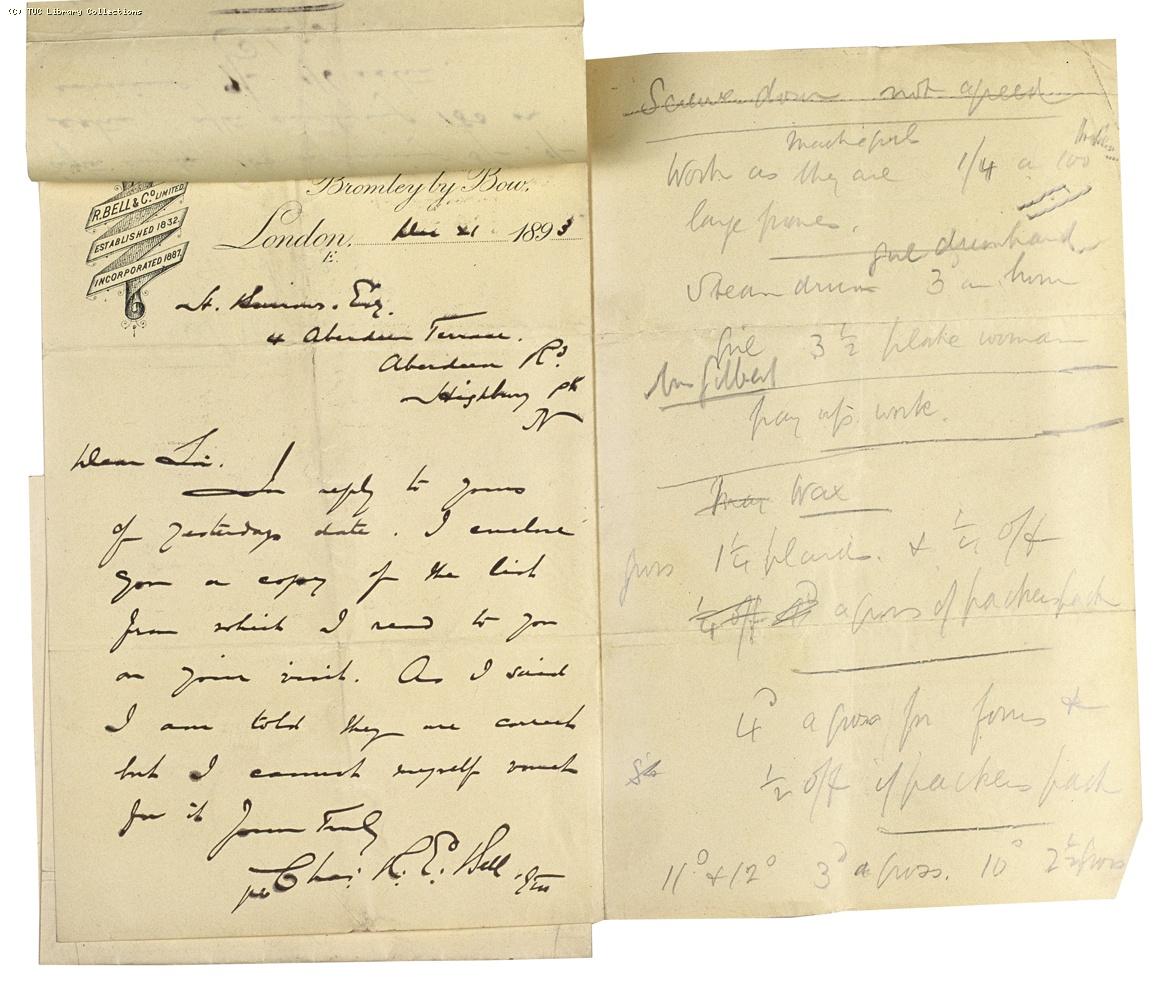 (C) TUC Library Collections
R. BELL & Co LIMITED.
ESTABLISHED 1832.
INCORPORATED 1887.
Bromley by Bow,
London, 21 1893
E.
H. Burrows. Esq.
4 Aberdeen Terrace.
Aberdeen Rd
Highbury Pk
N
Dear Sir.
In reply to yours
of yesterdays date. I enclose
you a copy of the list
from which I read to you
on your visit. As I said
I am told they are correct
but I cannot myself vouch
for it Yours Truly
Chas. R. E. Bell
down not agreed
Work as they are 1/4 a 100
large frames.
Steam drum 3 an hour
3 1/2 woman
Mrs Gilbert
pay up work.
Wax
gross 1 1/4 & 1/4 off
1/4 off a gross if packers pack
4d a gross for &
1/2 off if packers pack
11° & 12° 3d a gross. 10° 2 1/2 gross